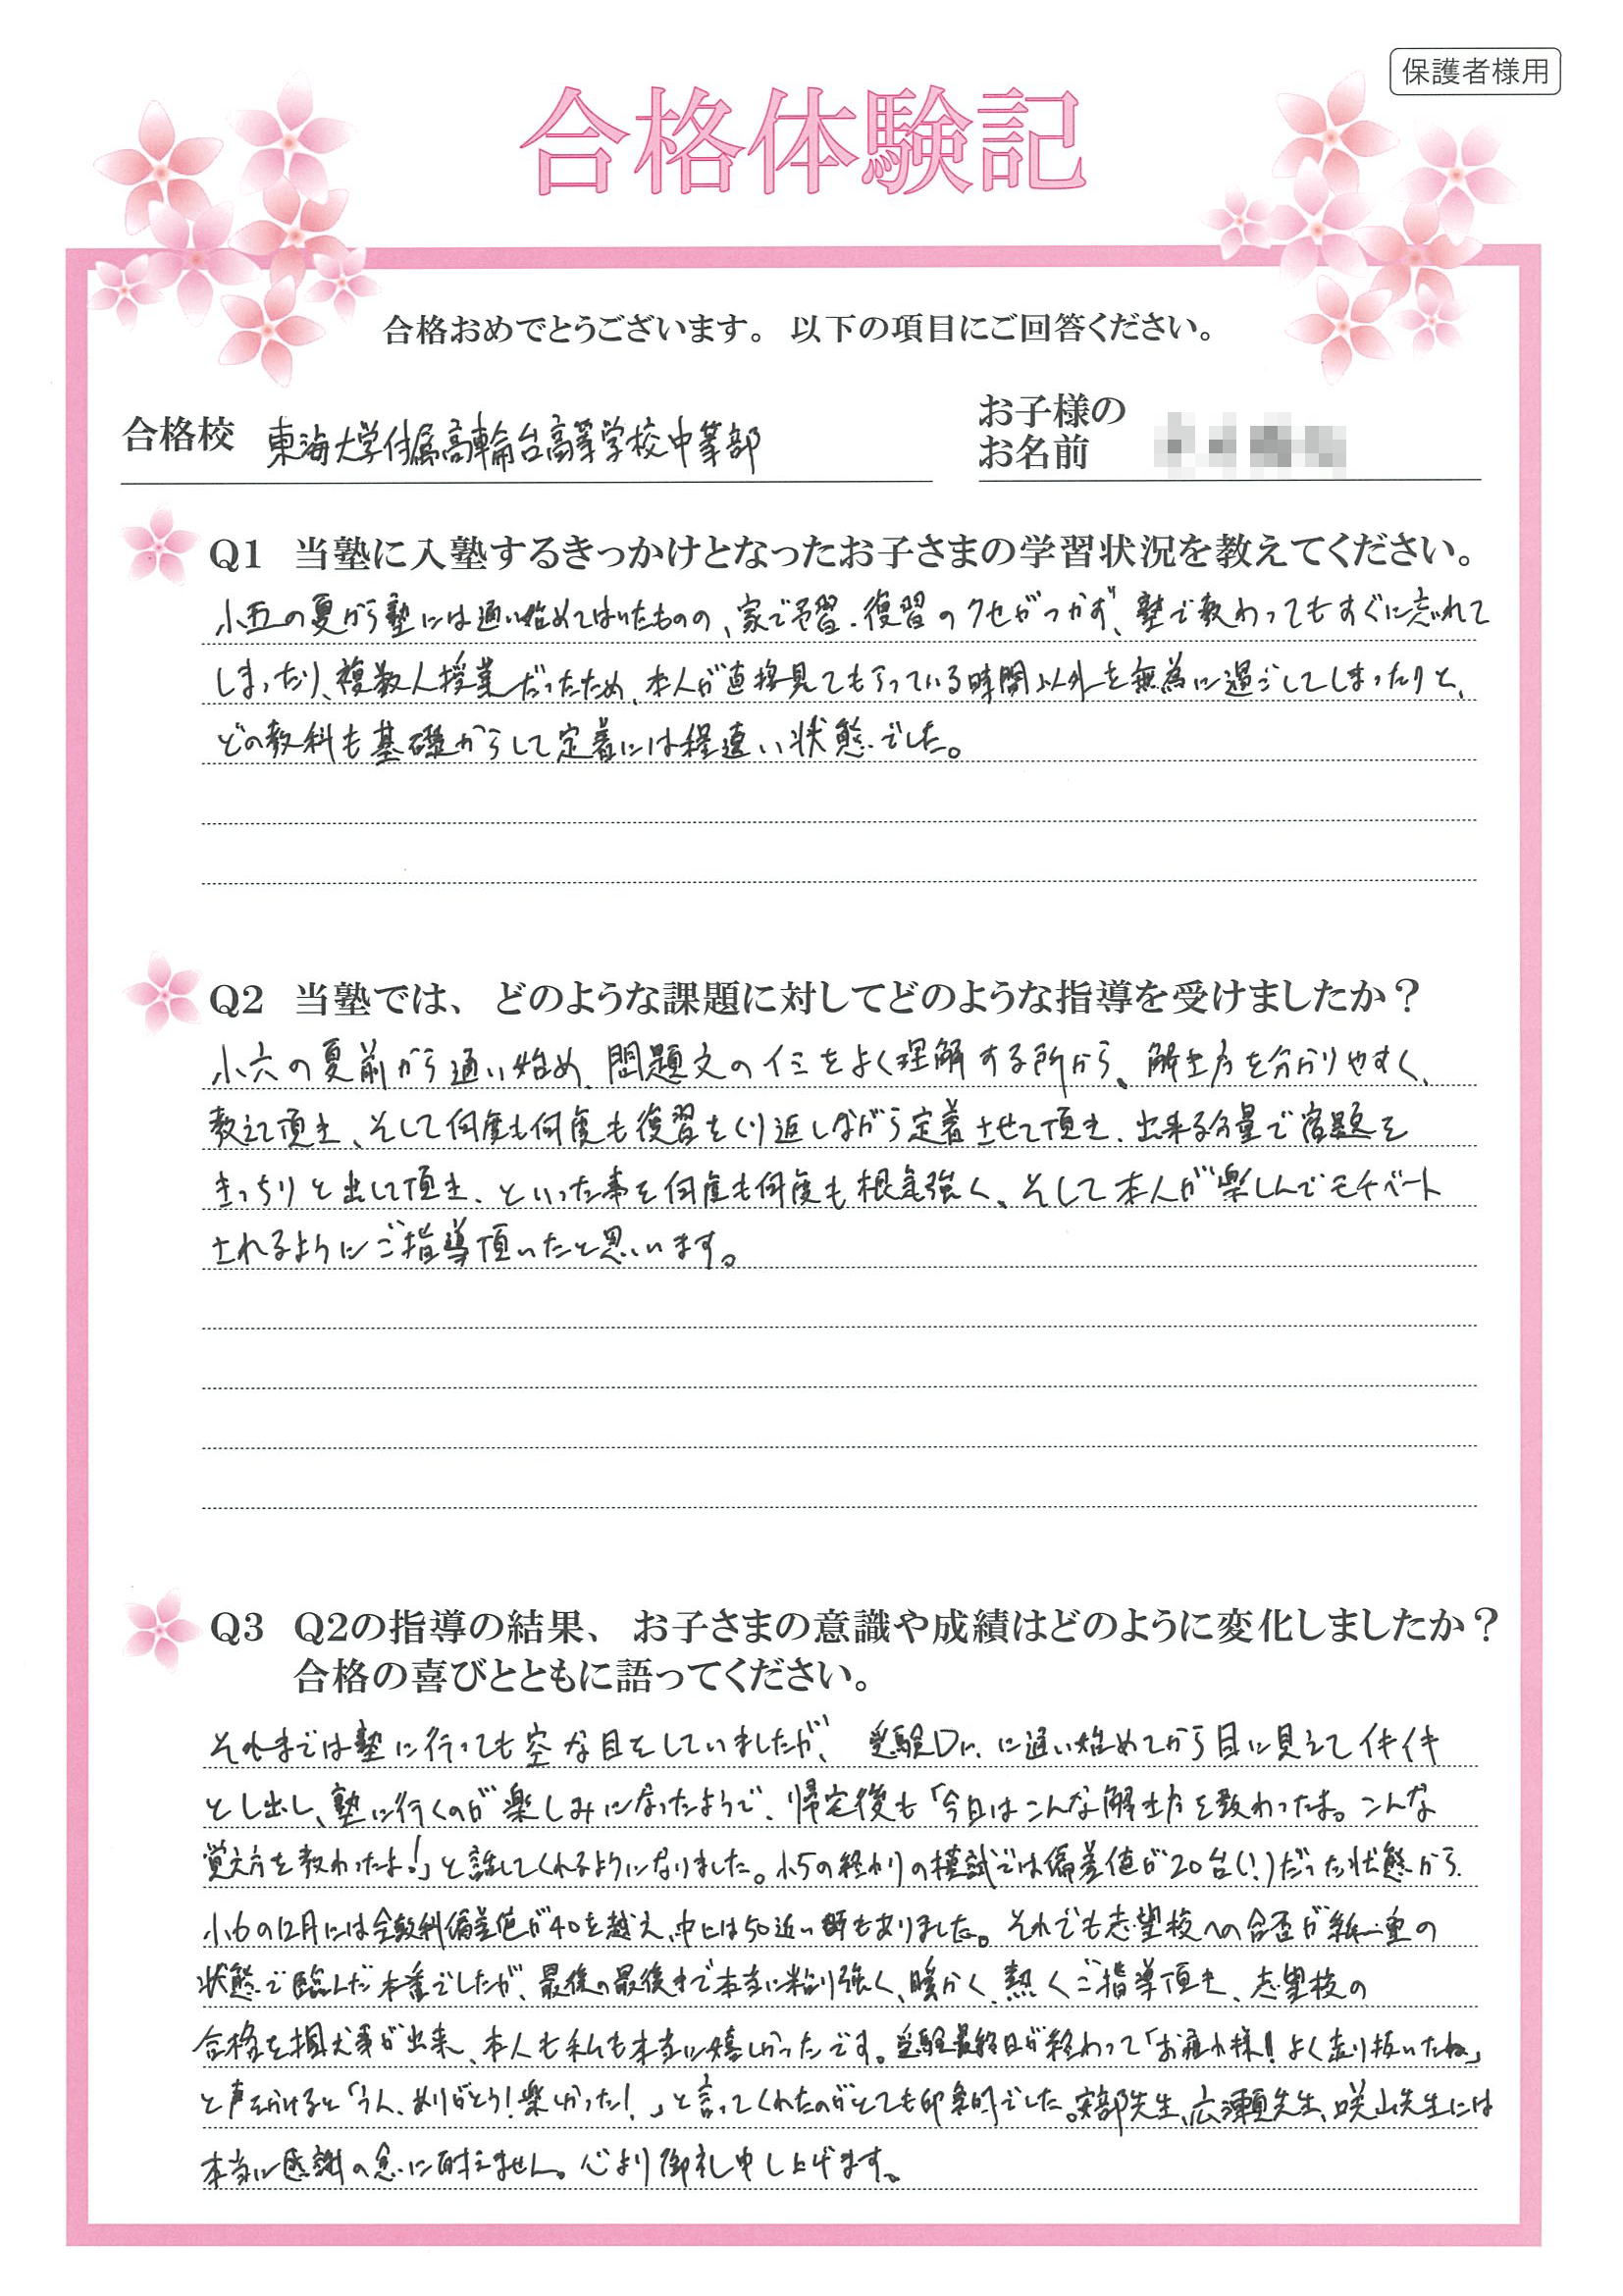 保護者様用
合格体験記
合格おめでとうございます。 以下の項目にご回答ください。
合格校 東海大学付属高輪台高等学校中等部
お子様の
お名前
Q1 当塾に入塾するきっかけとなったお子さまの学習状況を教えてください。
小五の夏から塾には通い始めてはいたものの、家で予習・復習のクセがつかず、塾で教わってもすぐに忘れて
しまったり、複数人授業だったため、本人が直接見てもらっている時間以外を無為に過ごしてしまったりと、
どの教科も基礎からして定着には程遠い状態でした。
Q2 当塾では、どのような課題に対してどのような指導を受けましたか？
小六の夏前から通い始め、問題文のイミをよく理解する所から、解き方を分かりやすく、
教えて頂き、そして何度も何度も復習をくり返しながら定着させて頂き、出来る分量で宿題を
きっちりと出して頂き、といった事を何度も何度も根気強く、そして本人が楽しんでモチベート
されるようにご指導頂いたと思います。
Q3 Q2の指導の結果、お子さまの意識や成績はどのように変化しましたか？
合格の喜びとともに語ってください。
それまでは塾に行っても空な目をしていましたが、受験Dr.に通い始めてから目に見えてイキイキ
とし出し、塾に行くのが楽しみになったようで、帰宅後も「今日はこんな解き方を教わったよ。こんな
覚え方を教わったよ!」と話してくれるようになりました。小5の終わりの模試では偏差値が20台(!)だった状態から、
小6の12月には全教科偏差値が40を越え、中には50近い時もありました。それでも志望校への合否が紙一重の
状態で臨んだ本番でしたが、最後の最後まで本当に粘り強く、暖かく、熱くご指導頂き、志望校の
合格を掴む事が出来、本人も私も本当に嬉しかったです。受験最終日が終わって「お疲れ様!よく走り抜いたね」
と声をかけると「うん、ありがとう!楽しかった!」と言ってくれたのがとても印象的でした。安部先生、広瀬先生、咲山先生には
本当に感謝の念に耐えません。心より御礼申し上げます。